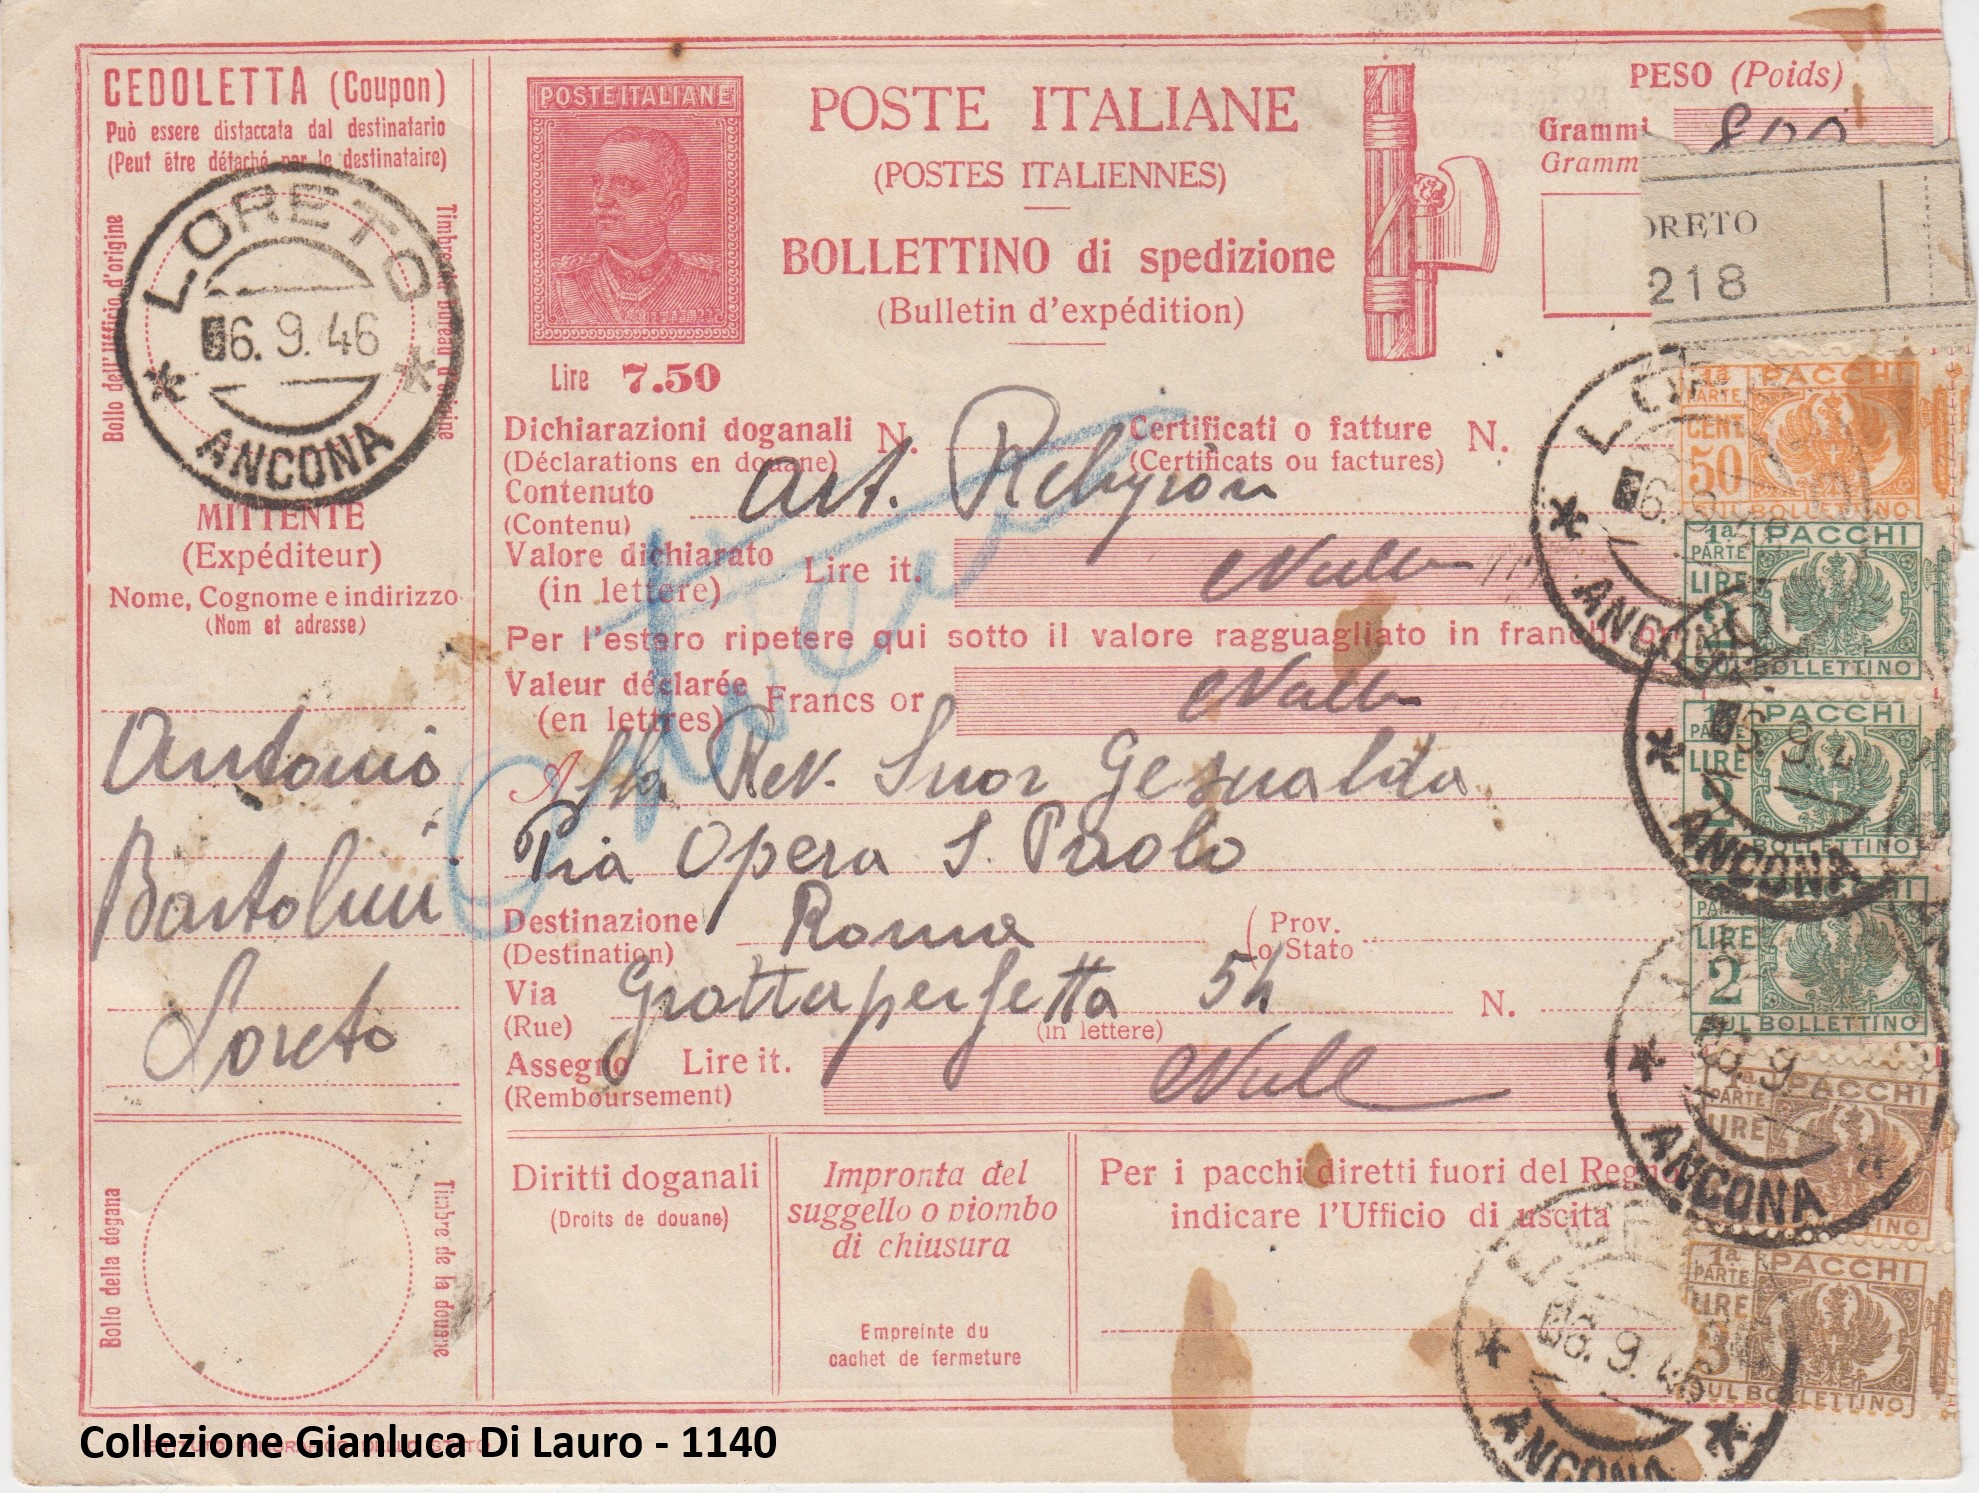 CEDOLETTA (Coupon)
Può essere distaccata dal destinatario
(Peut être détaché par le destinataire)
Bollo dell'Ufficio d'origine
Timbre du bureau d'origine
LORETO
6.9.46
ANCONA
MITTENTE
(Expéditeur)
Nome, Cognome e indirizzo
(Nom et adresse)
Antonio
Bartolini
Loreto
Bollo della dogana
Timbre de la douane
POSTE ITALIANE
Lire 7.50
POSTE ITALIANE
(POSTES ITALIENNES)
BOLLETTINO di spedizione
(Bulletin d'expédition)
PESO (Poids)
Grammi 800
Gramm
ORETO
218
Dichiarazioni doganali N.
(Déclarations en douane)
Certificati o fatture N.
(Certificats ou factures)
Contenuto Art.
(Contenu)
Valore dichiarato Lire it. Nullo
(in lettere)
Per l'estero ripetere qui sotto il valore ragguagliato in franchi or
Valeur déclarée Francs or Nullo
(en lettres)
Alla Rev. Suor Gesualda
Pia Opera S. Paolo
Destinazione Roma (Prov.
(Destination) (o Stato
Via Grottaperfetta 54 N.
(Rue) (in lettere)
Assegno Lire it. Null
(Remboursement)
Diritti doganali
(Droits de douane)
Impronta del
suggello o piombo
di chiusura
Empreinte du
cachet de fermeture
Per i pacchi diretti fuori del Regno
indicare l'Ufficio di uscita
1a PARTE PACCHI
CENT. 50
SUL BOLLETTINO
1a PARTE PACCHI
LIRE 2
SUL BOLLETTINO
PACCHI
LIRE 2
BOLLETTINO
LIRE 2
SUL BOLLETTINO
1a PARTE PACCHI
LIRE
1a PARTE PACCHI
LIRE 3
SUL BOLLETTINO
6.9
ANCONA
6.9
ANCONA
6.9
ANCONA
6.9.46
ANCONA
Collezione Gianluca Di Lauro - 1140